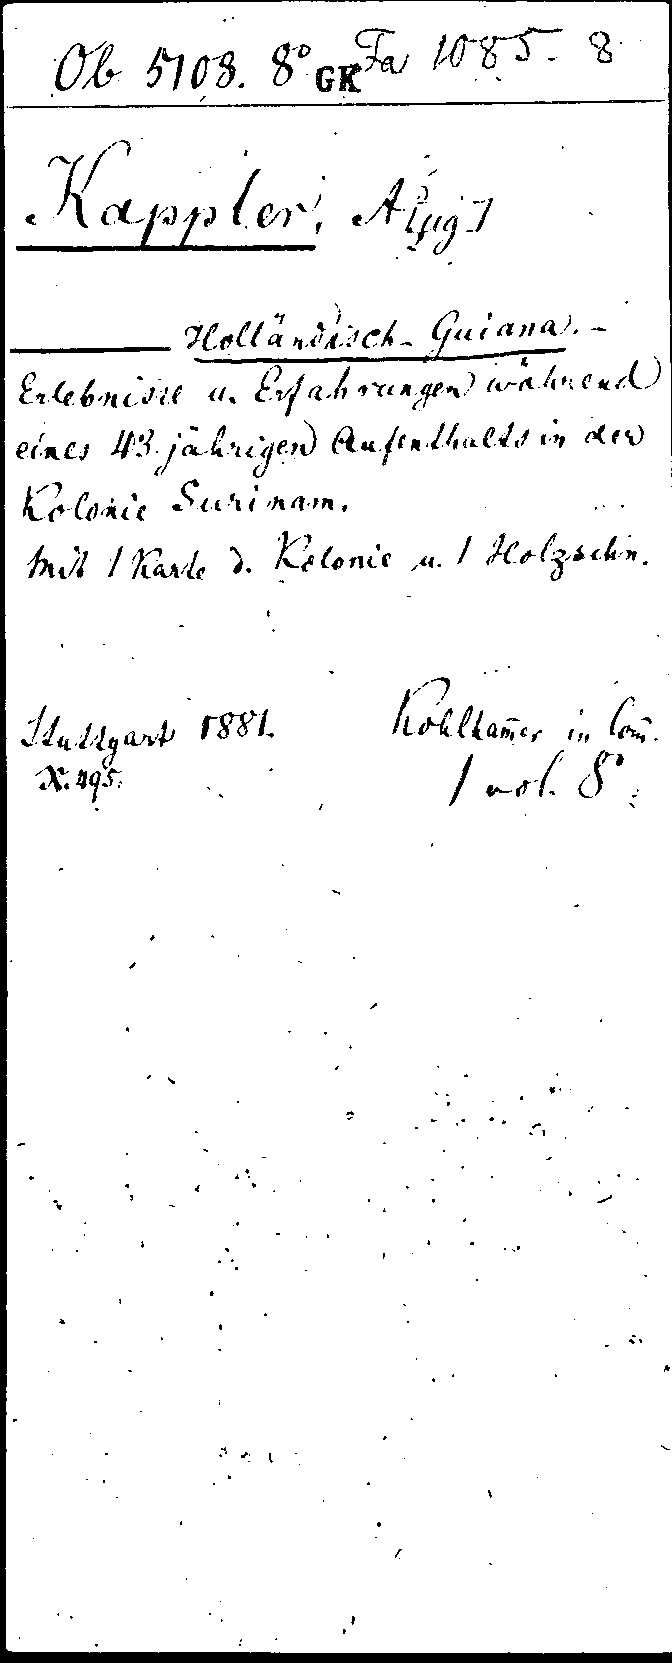 Ob 5108. 8° GK Fa 1085. 8
Kappler, A[ug]
Holländisch-Guiana. –
Erlebnisse u. Erfahrungen während
eines 43 jährigen Aufenthalts in der
Kolonie Surinam.
Mit 1 Karte d. Kolonie u. 1 Holzschn.
Stuttgart 1881. Kohlham̅er in Com̅.
X. 495. 1 vol. 8°.